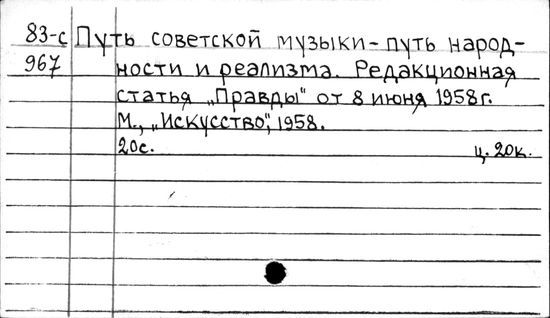 83-с Путь советской музыки-путь народ-
967 ности и реализма. Редакционная
статья „Правды" от 8 июня 1958г.
М., „Искусство", 1958.
20с. ц. 20к.